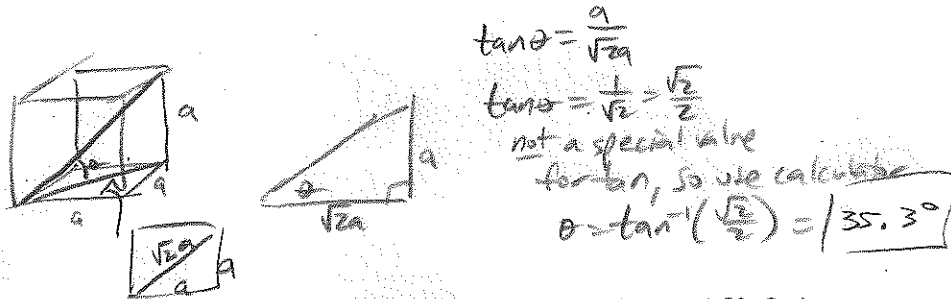 a
a
a
θ
√2a
a
a
θ
a
√2a
tanθ = a/√2a
tanθ = 1/√2 = √2/2
not a special value
for tan, so use calculator
θ = tan⁻¹(√2/2) = 35.3°